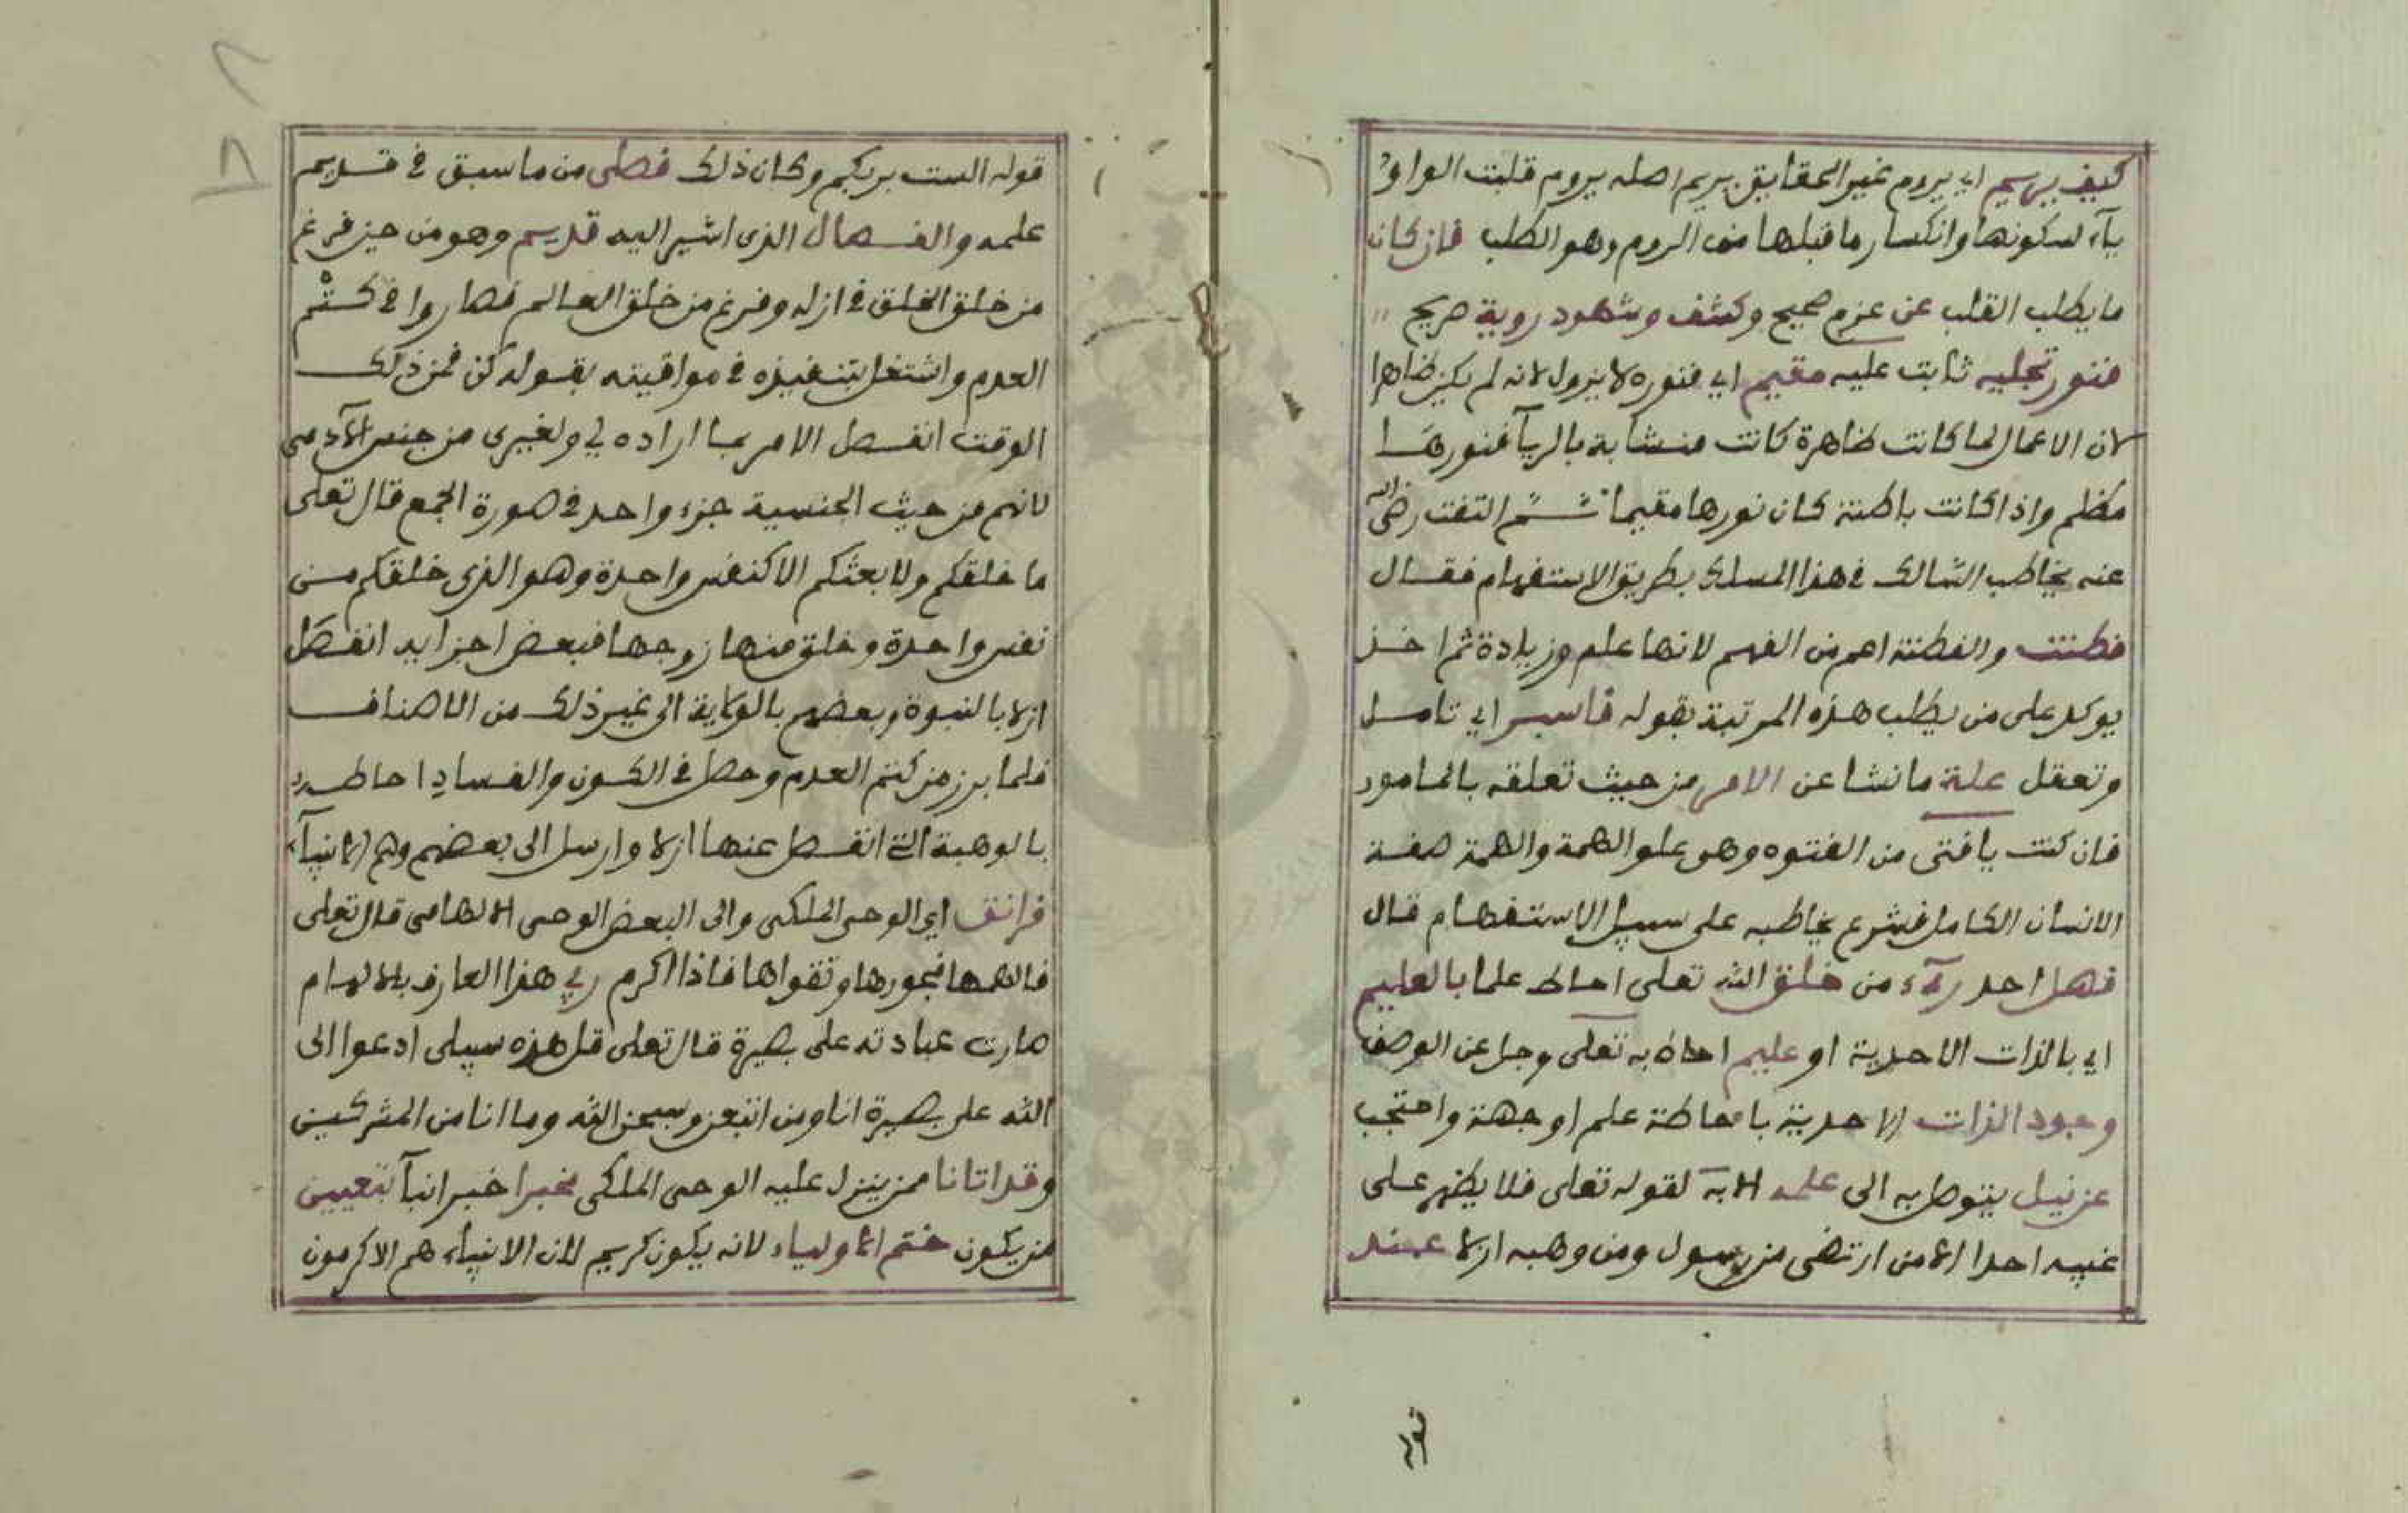 كيف يريم اي يروم غير الحقايق يريم اصله يروم قلبت الواو
ياء لسكونها وانكسار ما قبلها من الروم وهو الطلب فان كان
ما يطلب القلب عن عزم صحيح وكشف وشهود روية صريح
فنور تجليه ثابت عليه مقيم اي فنوره لا يزول لانه لم يكن ظاهرا
لان الاعمال لما كانت ظاهرة كانت منشابة بالريآ فنورها
مظلم واذا كانت باطنة كان نورها مقيما ثم التفت رضي الله
عنه يخاطب السالك في هذا المسلك بطريق الاستفهام فقال
فطنت والفطنة اهم من الفهم لانها علم وزيادة ثم اخذ
يوكد على من يطلب هذه المرتبة بقوله فاسبر اي تامل
وتعقل علة ما نشا عن الامر من حيث تعلقه بالمامور
فان كنت يا فتى من الفتوه وهي علو الهمة والهمة صفة
الانسان الكامل فشرع يخاطبه على سبيل الاستفهام قال
فهل احد رآء من خلق الله تعلى احاط علما بالعليم
اي بالذات الاحدية او عليم احاط به تعلى وجل عن الوصف
وجود الذات الاحدية باحاطة علم او جهة واحتجب
عن نيل يتوصل به الى علمه الا به لقوله تعلى فلا يظهر على
غيبه احدا الا من ارتضى من رسول ومن وهبه ازلا عند
قوله
قوله الست بربكم وكان ذلك فصلى من ما سبق في قديم
علمه والفصال الذي اشير اليه قديم وهو من حين فرغ
من خلق الخلق في ازله وفرغ من خلق العالم فصاروا في كتم
العدم واشتغل بتنفيذه في مواقيته بقوله كن فمن ذلك
الوقت انفصل الامر بما اراده لي ولغيري من جنس الآدمي
لانهم من حيث الجنسية جزء واحد في صورة الجمع قال تعلى
ما خلقكم ولا بعثكم الا كنفس واحدة وهو الذي خلقكم من
نفس واحدة وخلق منها زوجها فبعض اجزايه انفصل
ازلا بالنبوة وبعضهم بالولاية الى غير ذلك من الاصناف
فلما برز من كتم العدم وحصل في الكون والفساد احاطه
بالوهبة التي انفصل عنها ازلا وارسل الى بعضهم وهم الانبيآء
فرانق اي الوحي الملكي والى البعض الوحي الالهامي قال تعلى
فالهمها فجورها وتقواها فاذا اكرم ربي هذا العارف بالالهام
صارت عبادته على بصيرة قال تعلى قل هذه سبيلي ادعوا الى
الله على بصيرة انا ومن اتبعن وسبحن الله وما انا من المشركين
وقد اتانا ممن ينزل عليه الوحي الملكي مخبرا خبر انبآ بتعيين
من يكون ختم الاولياء لانه يكون كريم لان الانبياء هم الاكرمون